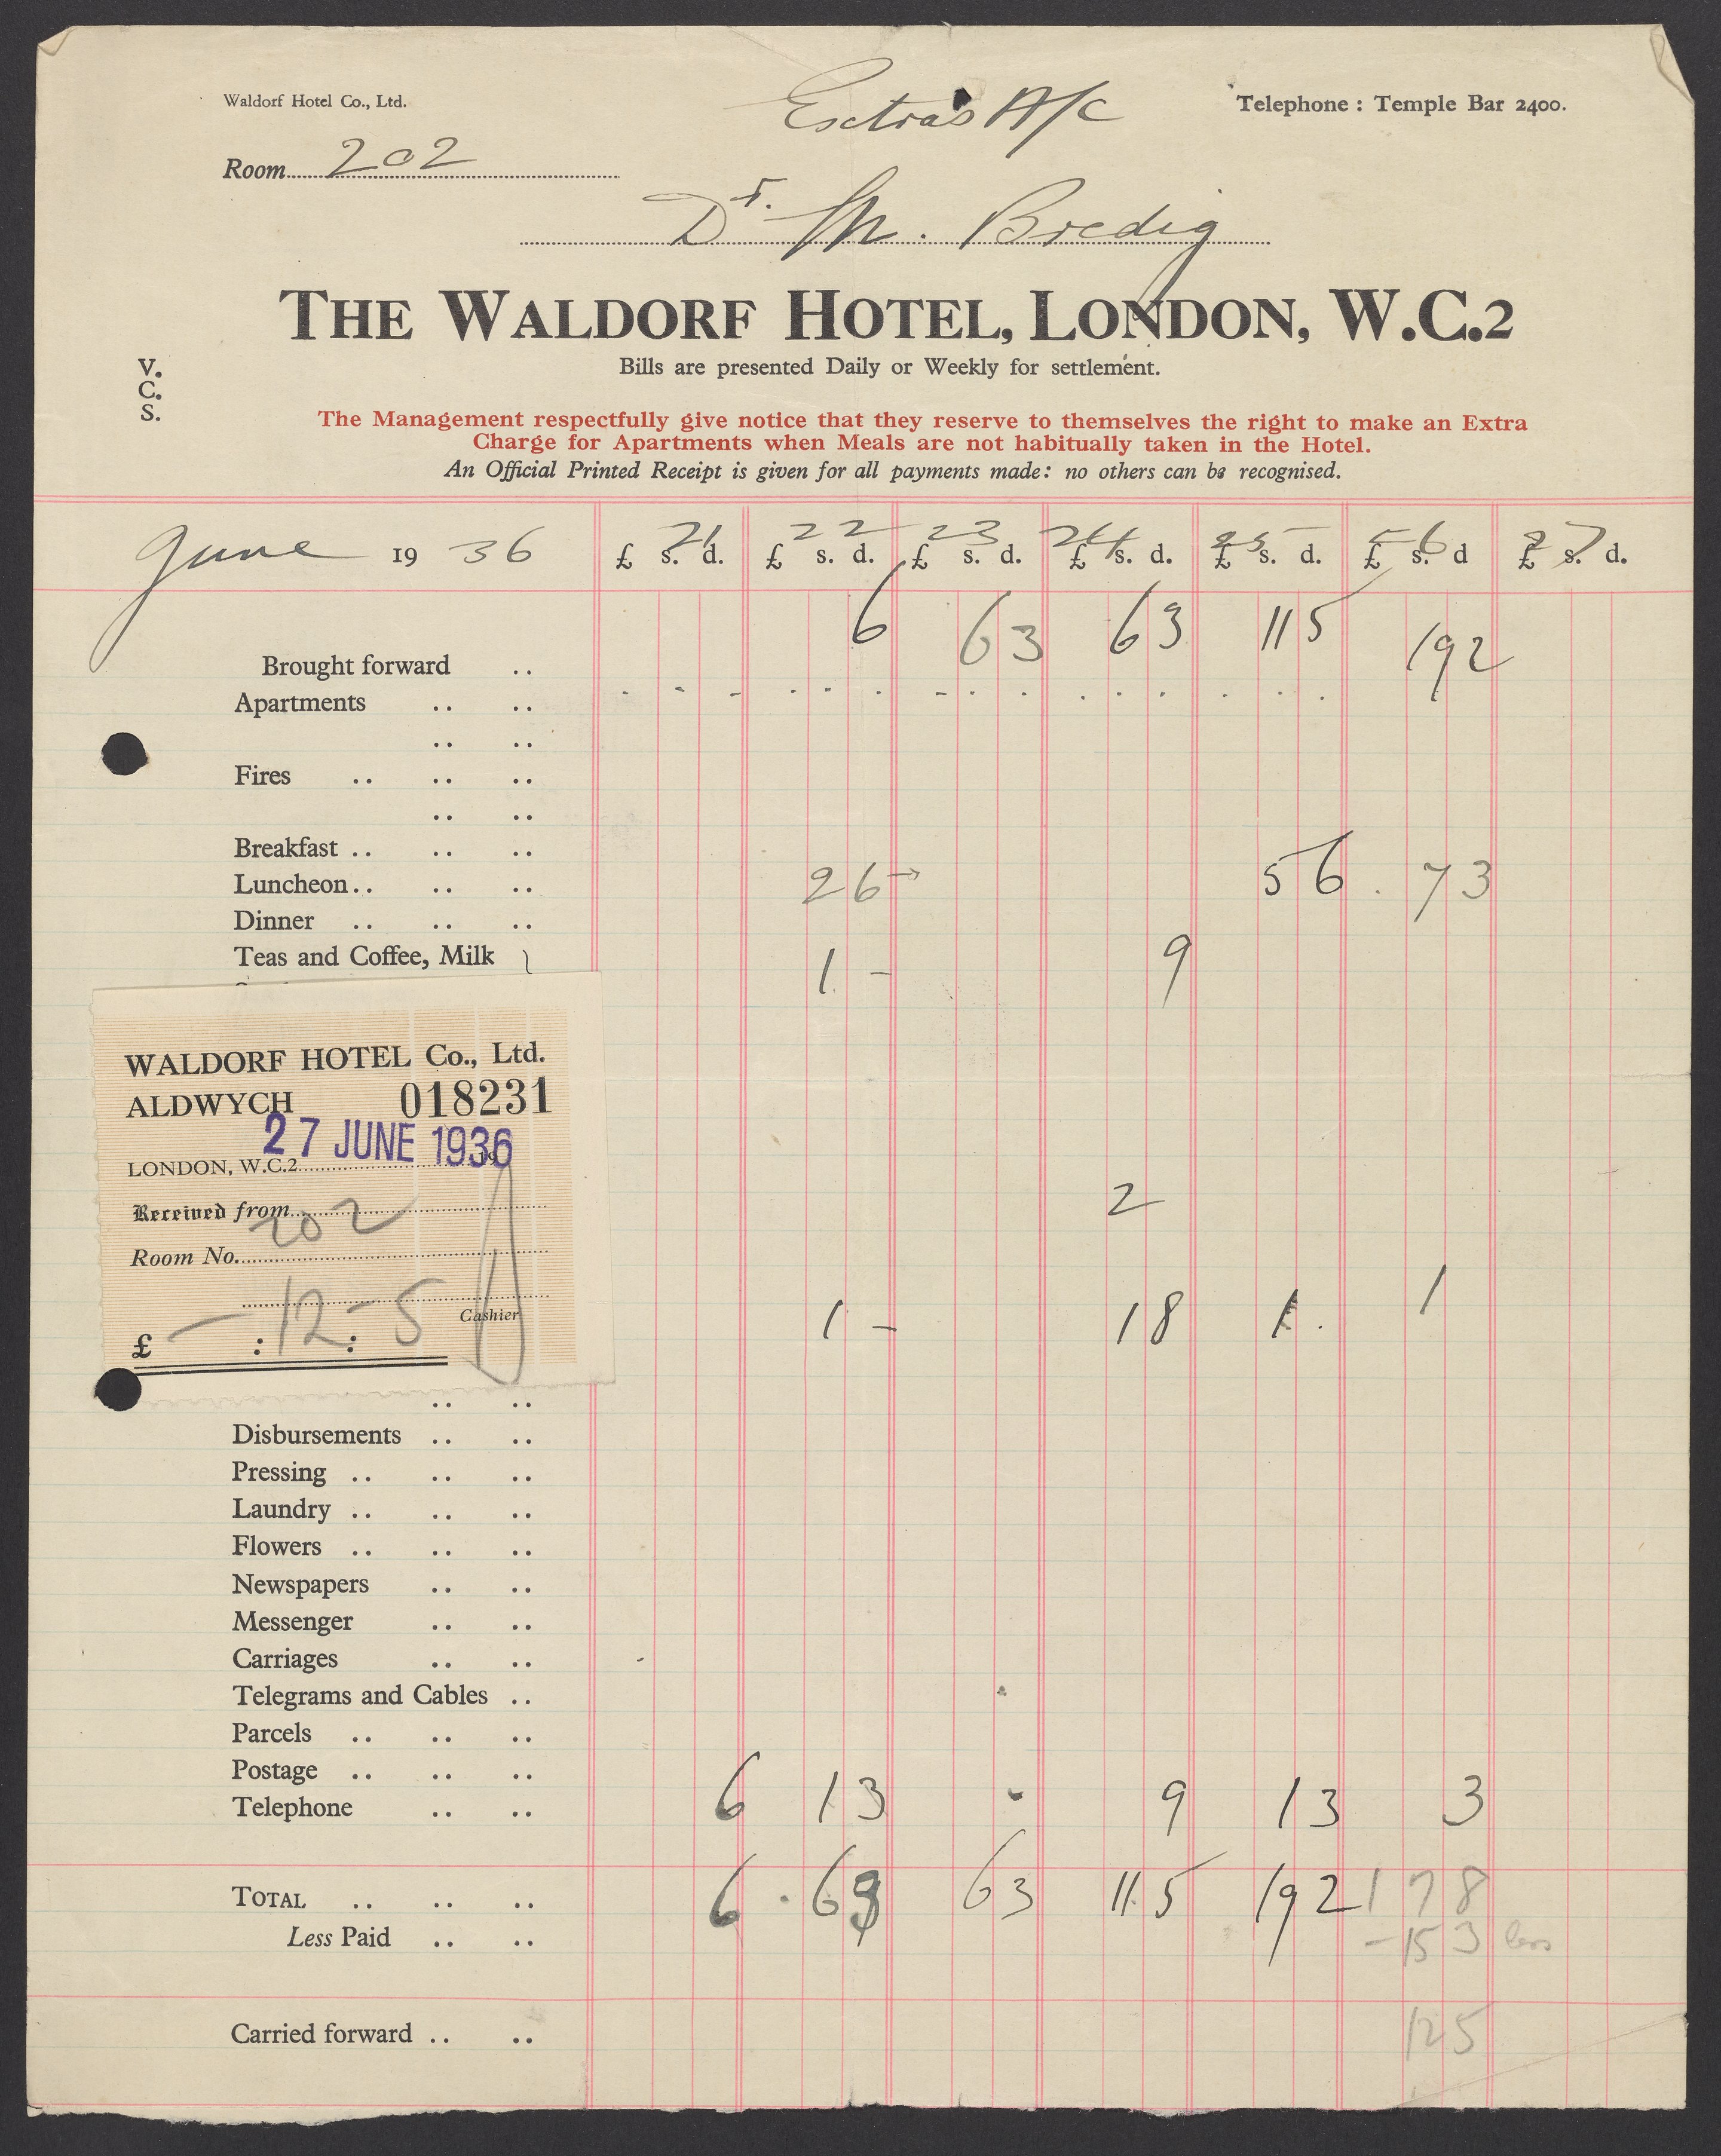 Waldorf Hotel Co., Ltd.
Extras A/c
Telephone : Temple Bar 2400.
Room 202
Dr. M. Bredig
THE WALDORF HOTEL, LONDON, W.C.2
Bills are presented Daily or Weekly for settlement.
V.
C.
S.
The Management respectfully give notice that they reserve to themselves the right to make an Extra
Charge for Apartments when Meals are not habitually taken in the Hotel.
An Official Printed Receipt is given for all payments made: no others can be recognised.
21 22 23 24 25 26 27
June 19 36 £ s. d. £ s. d. £ s. d. £ s. d. £ s. d. £ s. d £ s. d.
Brought forward .. 6 6 3 6 3 11 5 19 2
Apartments .. ..
.. ..
Fires .. .. ..
.. ..
Breakfast .. .. ..
Luncheon .. .. .. 2 6 5 6 7 3
Dinner .. .. ..
Teas and Coffee, Milk 1 - 9
WALDORF HOTEL Co., Ltd.
ALDWYCH 018231
27 JUNE 1936
LONDON, W.C.2 19
Received from 202
Room No.
Cashier
£ - : 12 - : 5
2
1 - 1 8 1 1
.. ..
Disbursements .. ..
Pressing .. .. ..
Laundry .. .. ..
Flowers .. .. ..
Newspapers .. ..
Messenger .. ..
Carriages .. ..
Telegrams and Cables ..
Parcels .. .. ..
Postage .. .. ..
Telephone .. .. 6 1 3 9 1 3 3
TOTAL .. .. .. 6 6 3 6 3 11 5 19 2 1 7 8
Less Paid .. .. - 15 3 less
Carried forward .. .. 12 5